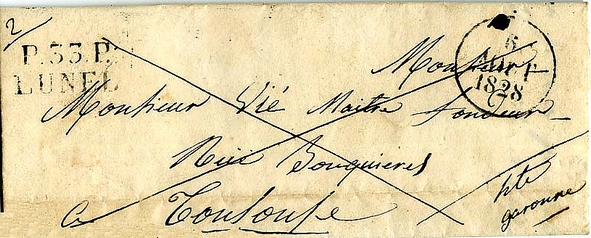 2/
P.33.P.
LUNEL
6
AOUT
1828
Monsieur
Monsieur Vié Maitre fondeur
Rue Bouquieres
a Toulouse
hte
garonne